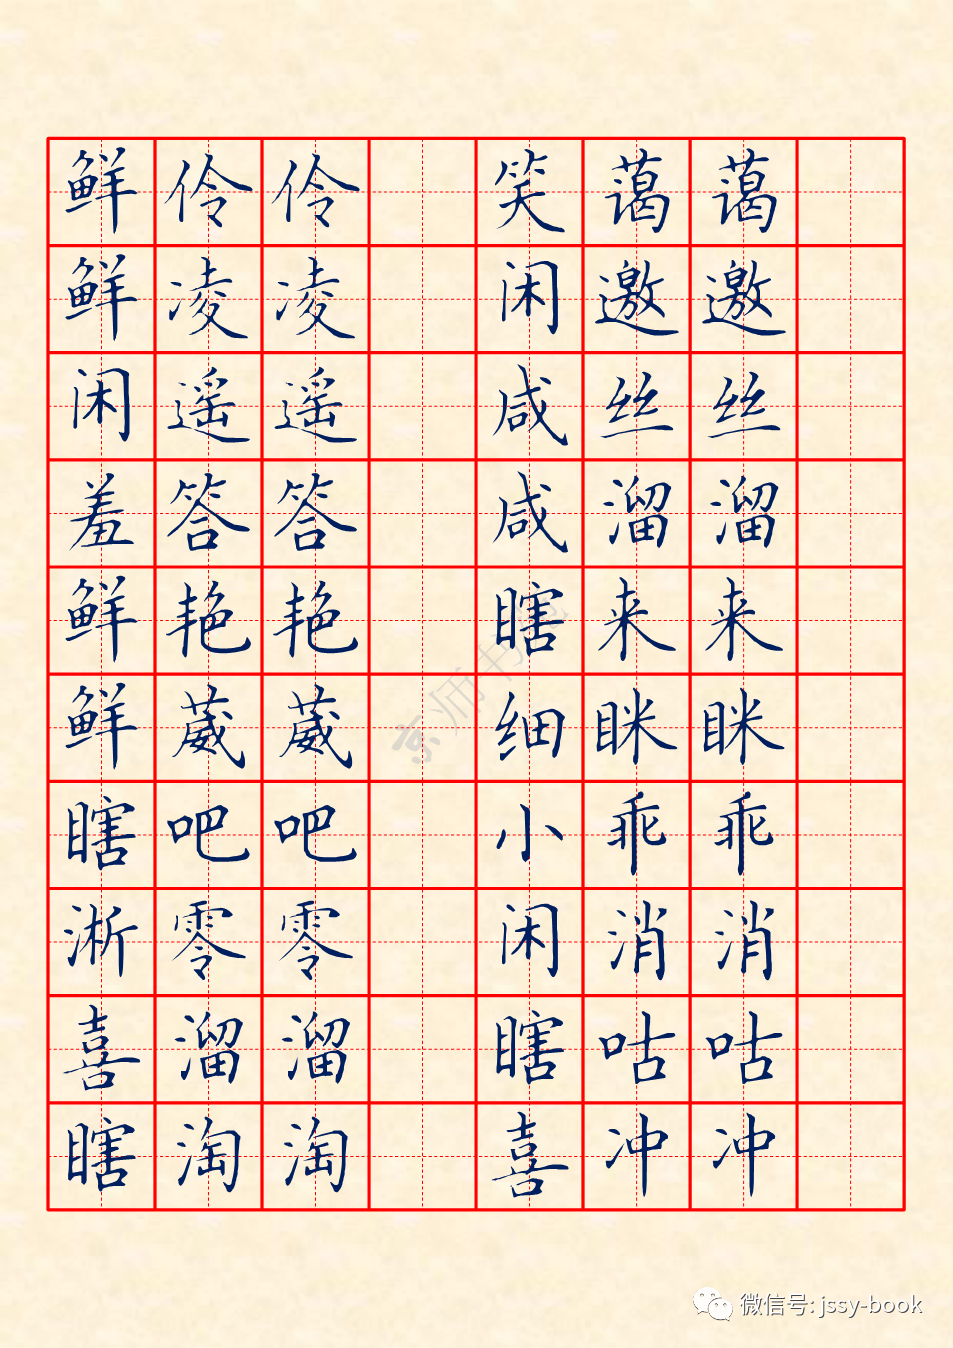 鲜伶伶 笑蔼蔼
鲜凌凌 闲邀邀
闲遥遥 咸丝丝
羞答答 咸溜溜
鲜艳艳 瞎来来
鲜葳葳 细眯眯
瞎吧吧 小乖乖
淅零零 闲消消
喜溜溜 瞎咕咕
瞎淘淘 喜冲冲
京师书苑
微信号: jssy-book